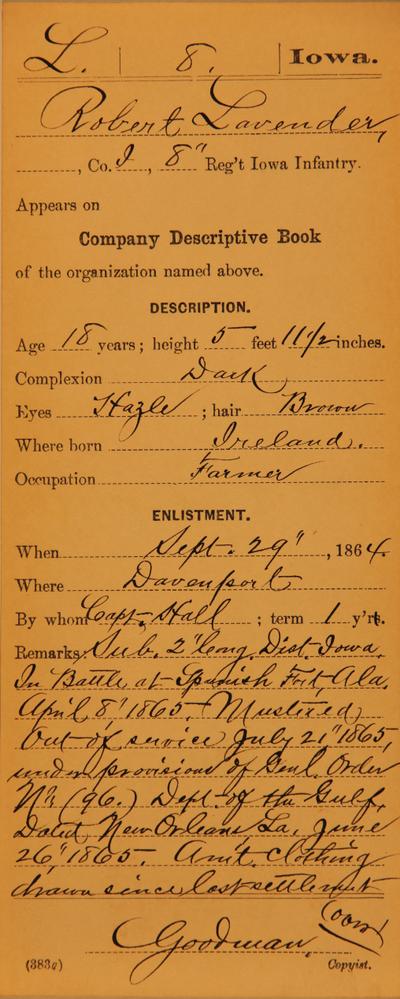 L. 8. Iowa.
Robert Lavender,
, Co. I, 8" Reg't Iowa Infantry.
Appears on
Company Descriptive Book
of the organization named above.
DESCRIPTION.
Age 18 years; height 5 feet 11 1/2 inches.
Complexion Dark
Eyes Hazle; hair Brown
Where born Ireland.
Occupation Farmer
ENLISTMENT.
When Sept. 29", 1864.
Where Davenport
By whom Capt. Hall; term 1 y'rs.
Remarks Sub. 2" Cong. Dist. Iowa.
In Battle at Spanish Fort, Ala.
April 8", 1865. Mustered
out of service July 21" 1865,
under provisions of Genl. Order
No. (96.) Dept. of the Gulf,
Dated New Orleans La. June
26", 1865. Am't. clothing
drawn since last settlement
(over)
Goodman,
(383g) Copyist.